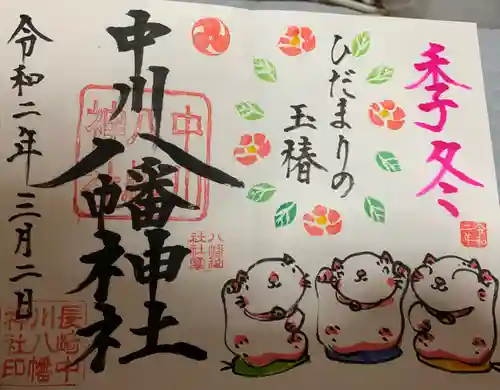 季冬
令和
二年
ひだまりの
玉椿
中川八幡神社
中川
八幡
神社
令和二年三月二日
長崎中
川八幡
神社印